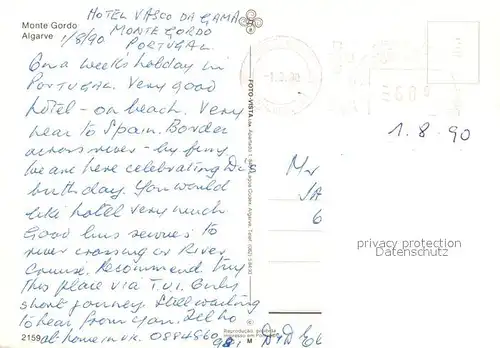 Monte Gordo
Algarve
HOTEL VASCO DA GAMA
1/8/90 MONTE GORDO
PORTUGAL
On a weeks holiday in
PORTUGAL. Very good
hotel - on beach. Very
near to Spain. Border
across river - by ferry.
We are here celebrating D's
birthday. You would
like hotel very much.
Good bus services to
river crossing or River
Cruise. Recommend try
this place via T.V.I. Only
short journey. Still waiting
to hear from you. Tel no
at home in UK. 0884860
98
D+D
FOTO-VISTA
-1.8.90
1.8.90
Mr
privacy protection
Datenschutz
2159
Reprodução proibida
M